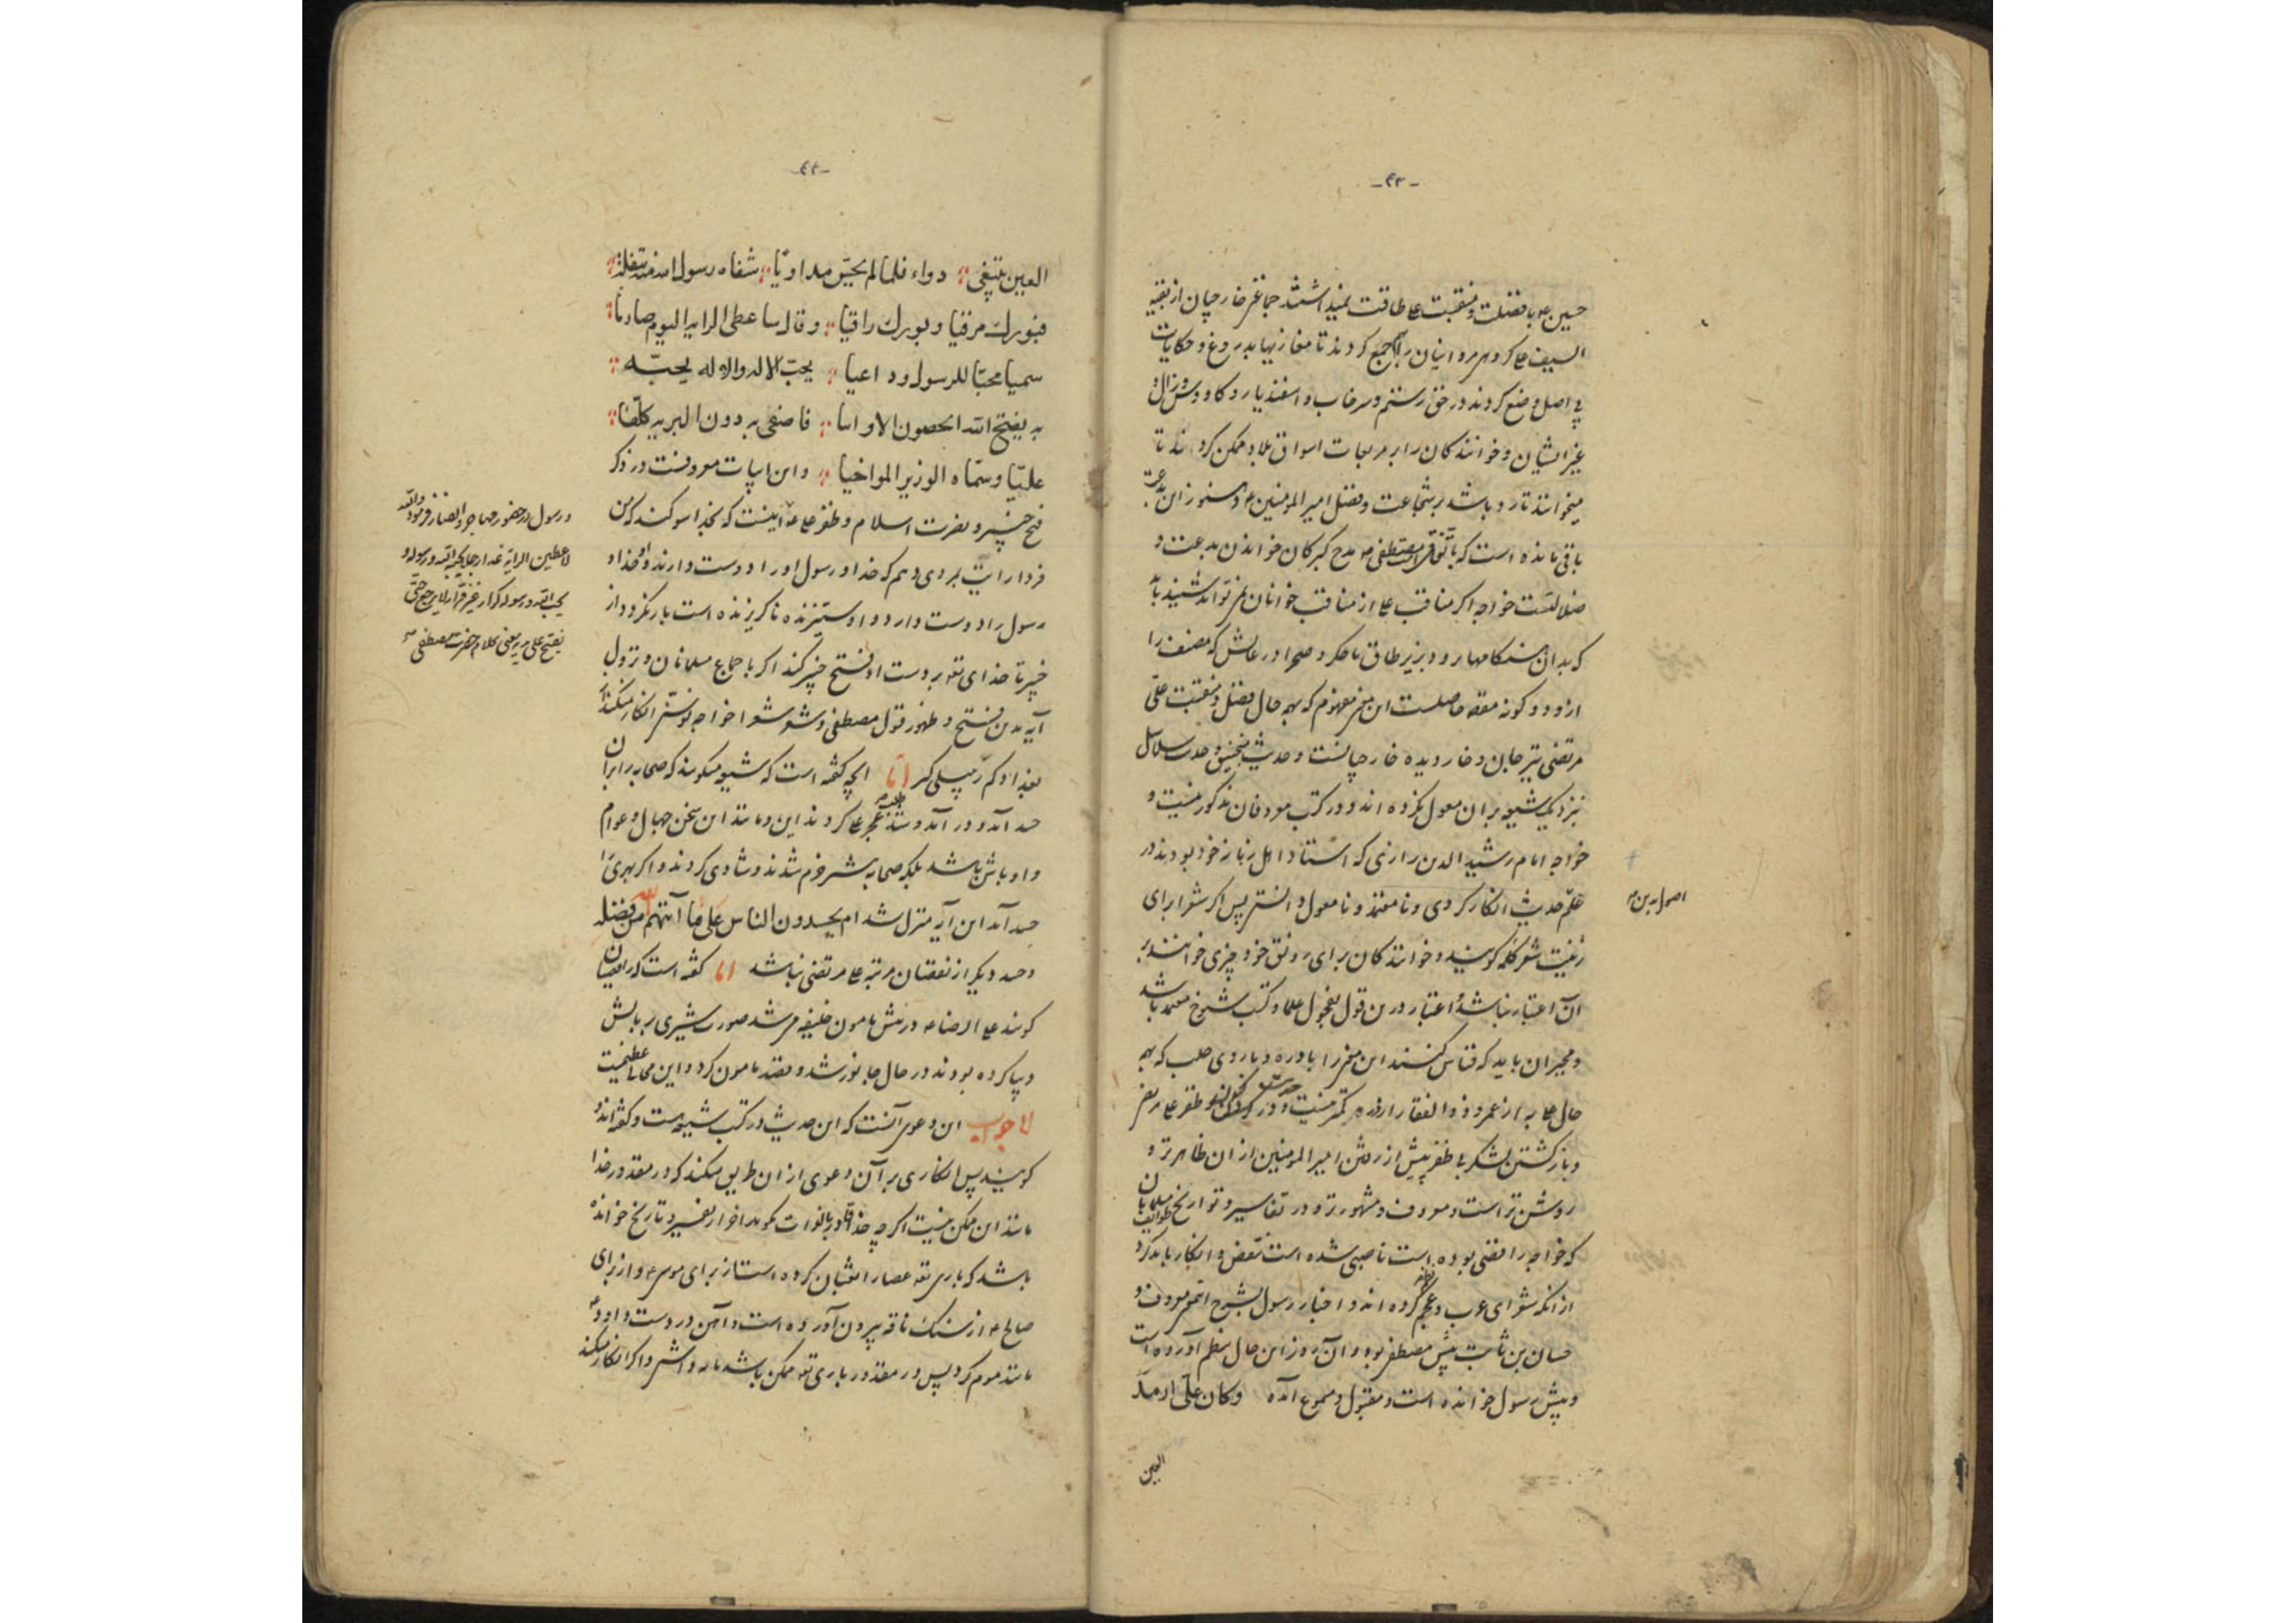 -۴۳-
حسین ع یا فضلت و منقبت علی طاقت نمیداشتند جماعتی خارجیان از بقیه
السیف علی و گروهی مروانیان را بهم جمع کردند تا مغازیها بدروغ و حکایات
بی اصل وضع کردند در حق رستم و سرخاب و اسفندیار و کاوس و زال و
غیر ایشان و خوانندگان را بر مربعات اسواق بلاد ممکن کردند تا
میخوانند تا رد باشد بر شجاعت و فضل امیر المؤمنین ع و هنوز این بدعت
باقی مانده است که باتفاق امت مصطفی مدح گبرکان خواندن بدعت و
ضلالتست خواجه اگر مناقب علی از مناقب خوانان نمی تواند شنید باید
که بدان هنگامها رود بزیر طاق باجگر و صحرا در غایش که مصنف را
ازو دو گونه مقصود حاصلست این معنی مفهوم که بهمه حال فضل و منقبت علی
مرتضی تیر جان و خار دیده خارجیانست و حدیث منجنیق و حدیث سلاسل
بنزدیک شیعه بران معول نکرده اند و در کتب معروفان مذکور نیست و
خواجه امام رشید الدین رازی که استاد اهل زمانه خود بود در
علم
اصول دین
حدیث انکار کردی و نا معتمد و نا معول دانستی پس اگر شعرا برای
زینت شعر کلمه گویند و خوانندگان برای رونق خود چیزی خوانند بر
آن اعتبار نباشد و اعتبار درین قول بقول علما و کتب شیوخ معتمد باشد
و مجبران باید که قیاس کنند این معنی را با دره و با روی صلب که بهمه
حال علی به از عمر و ذو الفقار از دره کمتر نیست و ظفر علی مر
و باز گشتن لشکر بی ظفر پیش از رفتن امیر المؤمنین از ان ظاهرتر و
روشن تر است و معروف و مشهورتر و در تفاسیر و تواریخ طوایف مسلمانان
که خواجه رافضی بوده است ناصبی شده است تعصب و انکار باید کرد
از آنکه شعرای عرب و عجم نظم کرده اند و اخبار رسول بشرح اتم معروف و
حسان بن ثابت پیش مصطفی بود و آن روز این حال بنظم آورده است
و پیش رسول خوانده است و مقبول و مسموع آمده و کان علی ارمد
العین
-۴۴-
العین یبتغی دواء فلما لم یحس مداویا شفاه رسول الله منه بتفلة
فبورک مرقیا و بورک راقیا و قال ساعطی الرایه الیوم صارما
سمیا محبا للرسول و داعیا یحب الاله و الاله یحبه
به یفتح الله الحصون الاوابیا فاصفی به دون البریه کلها
علیا و سماه الوزیر المواخیا و این ابیات معروفست در ذکر
فتح خیبر و نصرت اسلام و ظفر علی ع آنست که بخدا سوگند که من
فردا رایت بمردی دهم که خدا و رسول او را دوست دارند و او خدا و
رسول را دوست دارد و او ستیزنده نا گریزنده است باز نگردد از
خیبر تا خدای تعه بر دست او فتح خیبر کند اگر باجماع مسلمانان و نزول
آیه بدین فتح و ظهور قول مصطفی و شعر شعرا خواجه نو سنی انکار میکند
بغدادکم رمیلی گیر اما آنچه گفته است که شیعه میگویند که صحابه را بران
حسد آمد و درآمدند و طلب عجز علی کردند این و مانند این سخن جهال و عوام
و اوباش باشد بلکه صحابه بیشتر خرم شدند و شادی کردند و اگر بهری را
حسد آمد این آیه منزل شد ام یحسدون الناس علی ما آتیهم الله من فضله
و حسد دیگر از نقصان مرتبه علی مرتضی نباشد اما گفته است که رافضیان
گویند علی الرضا ع در پیش مامون خلیفه مر شد صورت شیری بر بالش
دیبا کرده بودند در حال جانور شد و قصد مامون کرد و این محالی عظیمست
الجواب این دعوی آنست که این حدیث در کتب شیعه هست و گفته اند و
گویند پس انکاری بر آن دعوی از ان طریق میکند که در مقدور خدا
مانند این ممکن نیست اگر چه خدا قادر بالذات گوید آخر از تفسیر و تاریخ خوانده
باشد که باری تعه عصا را ثعبان کرده است از برای موسی ع و از برای
صالح ع از سنگ ناقه بیرون آورده است و آهن در دست داود ع
مانند موم کرد پس در مقدور باری تعه ممکن باشد و اگر انکار میکند
و رسول در حضور مهاجر و انصار فرمود والله
لاعطین الرایة غدا رجلا یحبه الله و رسوله و
یحب الله و رسوله کرار غیر فرار لا یرجع حتی
یفتح علی یدیه یعنی کلام حضرت مصطفی ص